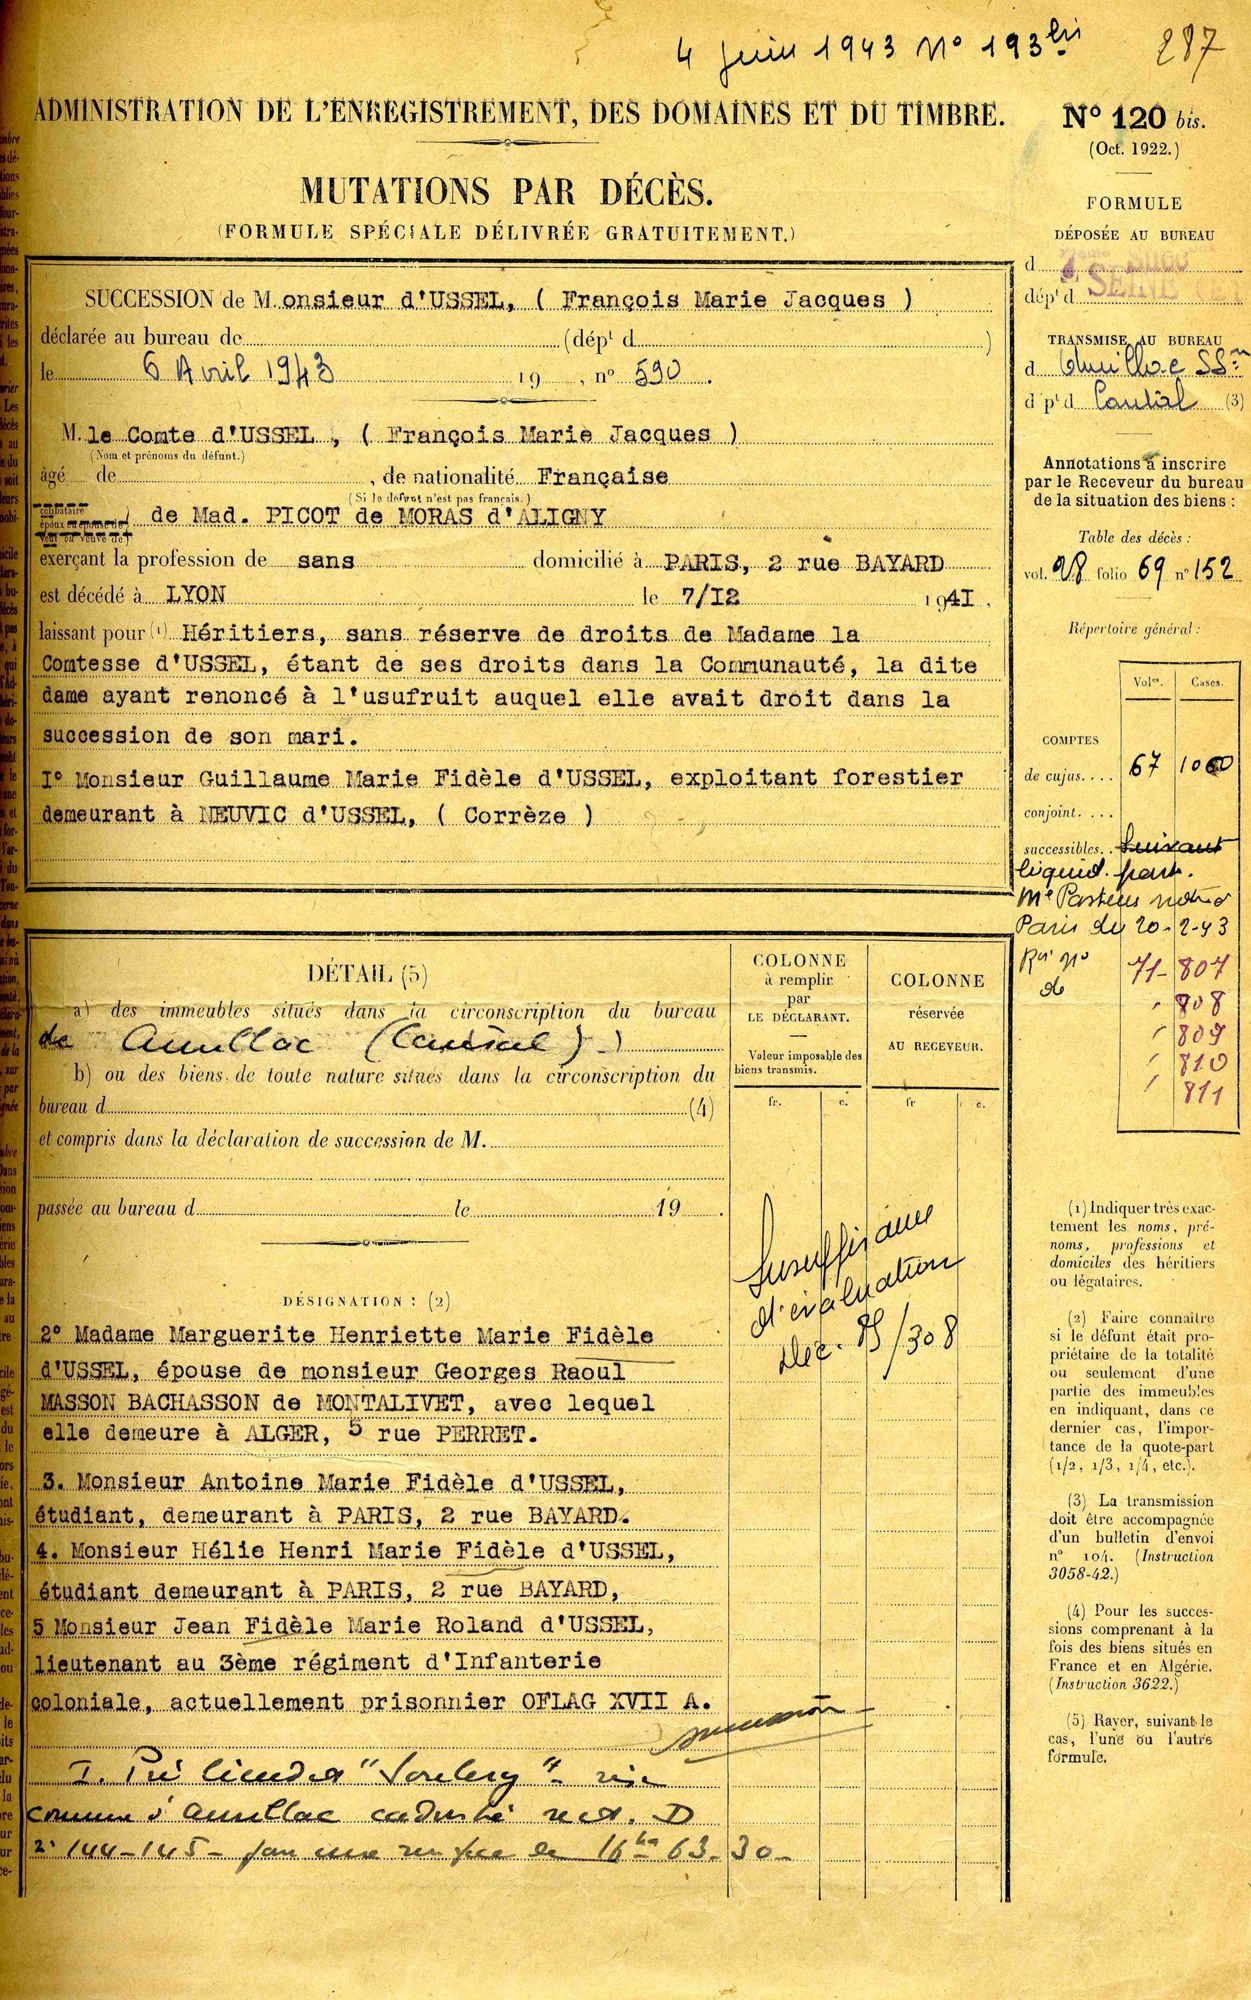 4 juin 1943 N° 193 bis 287
ADMINISTRATION DE L'ENREGISTREMENT, DES DOMAINES ET DU TIMBRE.
MUTATIONS PAR DÉCÈS.
(FORMULE SPÉCIALE DÉLIVRÉE GRATUITEMENT.)
N° 120 bis.
(Oct. 1922.)
FORMULE
DÉPOSÉE AU BUREAU
d
dépt d SEINE
TRANSMISE AU BUREAU
d
d pt d Cantal (3)
Annotations à inscrire
par le Receveur du bureau
de la situation des biens :
Table des décès :
vol. 28 folio 69 n° 152
Répertoire général :
Vol es. Cases.
COMPTES
de cujus.... 67 1060
conjoint....
successibles.. Suivant
liquid. part.
Me Pasteus
Paris du 20-2-43
71- 807
" 808
" 809
" 810
" 811
SUCCESSION de Monsieur d'USSEL, ( François Marie Jacques )
déclarée au bureau de (dépt d )
le 6 Avril 1943 19 , n° 590.
M. le Comte d'USSEL , ( François Marie Jacques )
(Nom et prénoms du défunt.)
âgé de , de nationalité Française
(Si le défunt n'est pas français.)
célibataire
époux ou épouse de
veuf ou veuve de
) de Mad. PICOT de MORAS d'ALIGNY
exerçant la profession de sans domicilié à PARIS, 2 rue BAYARD
est décédé à LYON le 7/I2 1941.
laissant pour (1) Héritiers, sans réserve de droits de Madame la
Comtesse d'USSEL, étant de ses droits dans la Communauté, la dite
dame ayant renoncé à l'usufruit auquel elle avait droit dans la
succession de son mari.
I° Monsieur Guillaume Marie Fidèle d'USSEL, exploitant forestier
demeurant à NEUVIC d'USSEL, ( Corrèze )
DÉTAIL (5)
a) des immeubles situés dans la circonscription du bureau
de Aurillac (Cantal)
b) ou des biens de toute nature situés dans la circonscription du
bureau d (4)
et compris dans la déclaration de succession de M.
passée au bureau d le 19 .
COLONNE
à remplir
par
LE DÉCLARANT.
Valeur imposable des
biens transmis.
fr. c.
COLONNE
réservée
AU RECEVEUR.
fr c.
Insuffisance
d'évaluation
Déc. 85/308
DÉSIGNATION : (2)
2° Madame Marguerite Henriette Marie Fidèle
d'USSEL, épouse de monsieur Georges Raoul
MASSON BACHASSON de MONTALIVET, avec lequel
elle demeure à ALGER, 5 rue PERRET.
3. Monsieur Antoine Marie Fidèle d'USSEL,
étudiant, demeurant à PARIS, 2 rue BAYARD.
4. Monsieur Hélie Henri Marie Fidèle d'USSEL,
étudiant demeurant à PARIS, 2 rue BAYARD,
5 Monsieur Jean Fidèle Marie Roland d'USSEL,
lieutenant au 3ème régiment d'Infanterie
coloniale, actuellement prisonnier OFLAG XVII A.
I. Pré
commune d'Aurillac cadastré sect. D
144-145- 16 ha 63-30-
(1) Indiquer très exac-
tement les noms, pré-
noms, professions et
domiciles des héritiers
ou légataires.
(2) Faire connaître
si le défunt était pro-
priétaire de la totalité
ou seulement d'une
partie des immeubles
en indiquant, dans ce
dernier cas, l'impor-
tance de la quote-part
(1/2, 1/3, 1/4, etc.).
(3) La transmission
doit être accompagnée
d'un bulletin d'envoi
n° 104. (Instruction
3058-42.)
(4) Pour les succes-
sions comprenant à la
fois des biens situés en
France et en Algérie.
(Instruction 3622.)
(5) Rayer, suivant le
cas, l'une ou l'autre
formule.